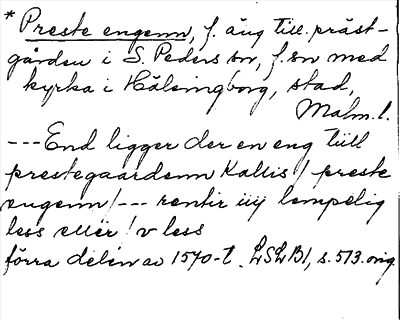 * Preste engenn, f. äng till präst-
gården i S. Peders sn, f. sn med
kyrka i Hälsingborg, stad,
Malm. l.
---End ligger der en eng tiill
prestegaardenn Kallis / preste
engenn /--- rentir iiij lempelig
less eller ! v less
förra delen av 1570-t. LSLB1, s. 573. orig.